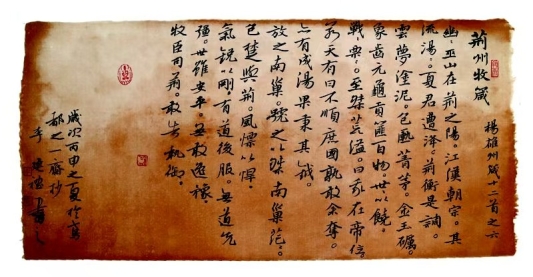 荊州牧箴 楊雄州箴十二首之六
幽巫山在荊之陽。江漢朝宗。其
流湯。夏君遭洚。荊衡是調。
雲夢塗泥。包匭菁茅。金玉礪。
象齒元龜。貢篚百物。世以饒。
戰慄。至桀荒溢。曰我在帝位
若天有日不順庶國孰敢余奪。
亦有成湯果秉其鉞。
放之南巢。號之以桀南巢茫。
包楚與荊。風慓以悍。
氣銳以剛。有道後服。無道先
強。世雖安平。無敢逸豫。
牧臣司荊。敢告執御。
歲次丙申之夏於
之一齋抄